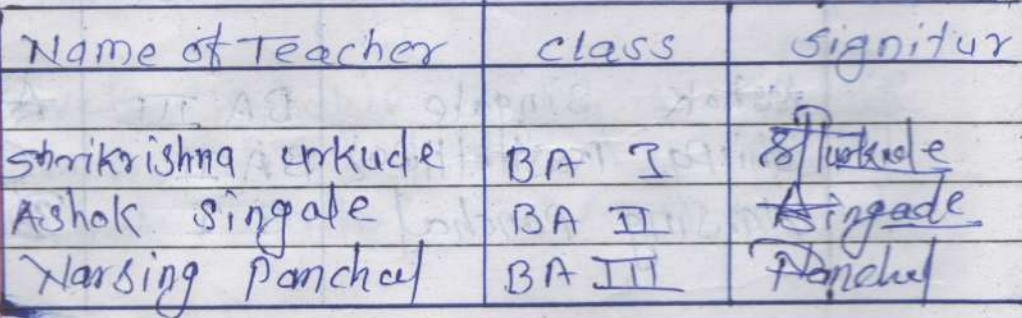 Name of Teacher class Signitur
Shrikrishna urkude BA I Surkude
Ashok Singale BA II Aingade
Narsing Panchal BA III Panchal